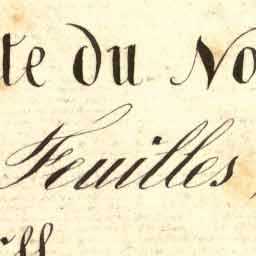 te du No
Feuilles,
ill